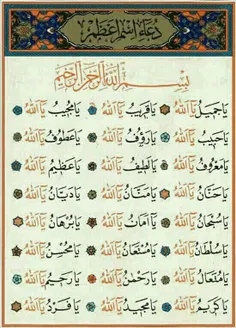 دُعَاءِ اِسْمِ اَعْظَمْ
بِسْمِ اللهِ الرَّحْمٰنِ الرَّحِيمِ
يَا جَمِيلُ يَا اَللهُ يَا قَرِيبُ يَا اَللهُ يَا مُجِيبُ يَا اَللهُ
يَا حَبِيبُ يَا اَللهُ يَا رَؤُوفُ يَا اَللهُ يَا عَطُوفُ يَا اَللهُ
يَا مَعْرُوفُ يَا اَللهُ يَا لَطِيفُ يَا اَللهُ يَا عَظِيمُ يَا اَللهُ
يَا حَنَّانُ يَا اَللهُ يَا مَنَّانُ يَا اَللهُ يَا دَيَّانُ يَا اَللهُ
يَا سُبْحَانُ يَا اَللهُ يَا اَمَانُ يَا اَللهُ يَا بُرْهَانُ يَا اَللهُ
يَا سُلْطَانُ يَا اَللهُ يَا مُسْتَعَانُ يَا اَللهُ يَا مُحْسِنُ يَا اَللهُ
يَا مُتَعَالُ يَا اَللهُ يَا رَحْمٰنُ يَا اَللهُ يَا رَحِيمُ يَا اَللهُ
يَا كَرِيمُ يَا اَللهُ يَا مَجِيدُ يَا اَللهُ يَا فَرْدُ يَا اَللهُ